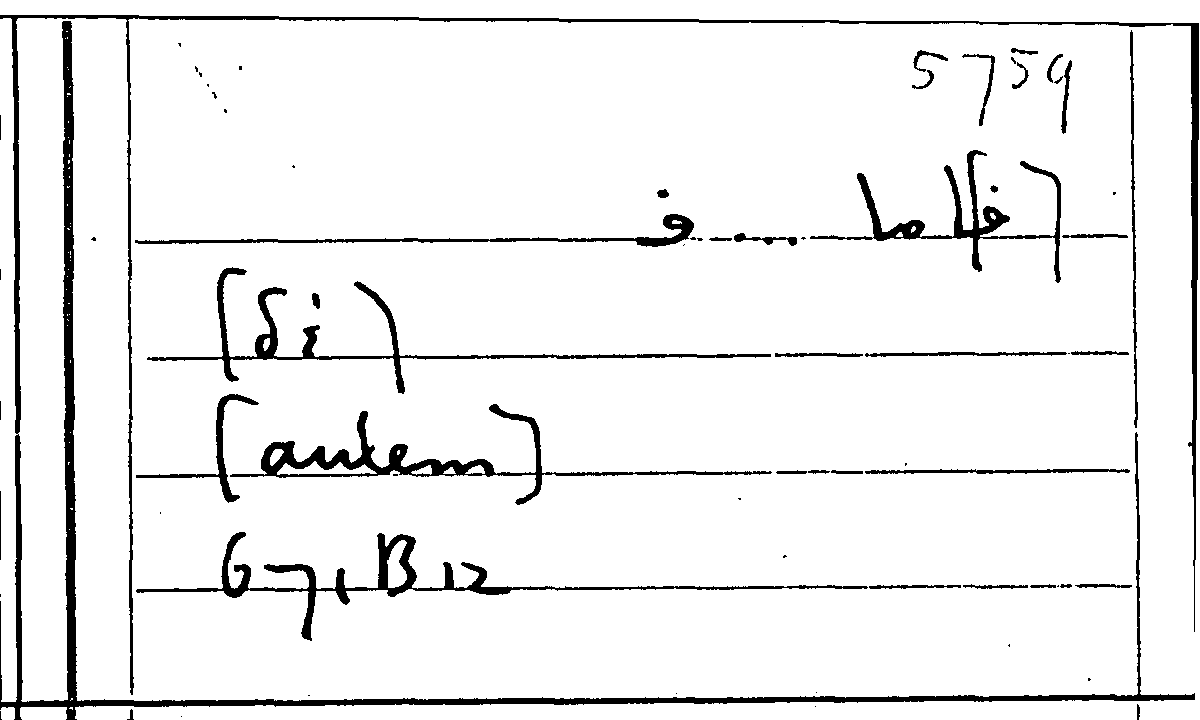 5759
[ف]اما ... ف
[δέ]
[autem]
67, B12